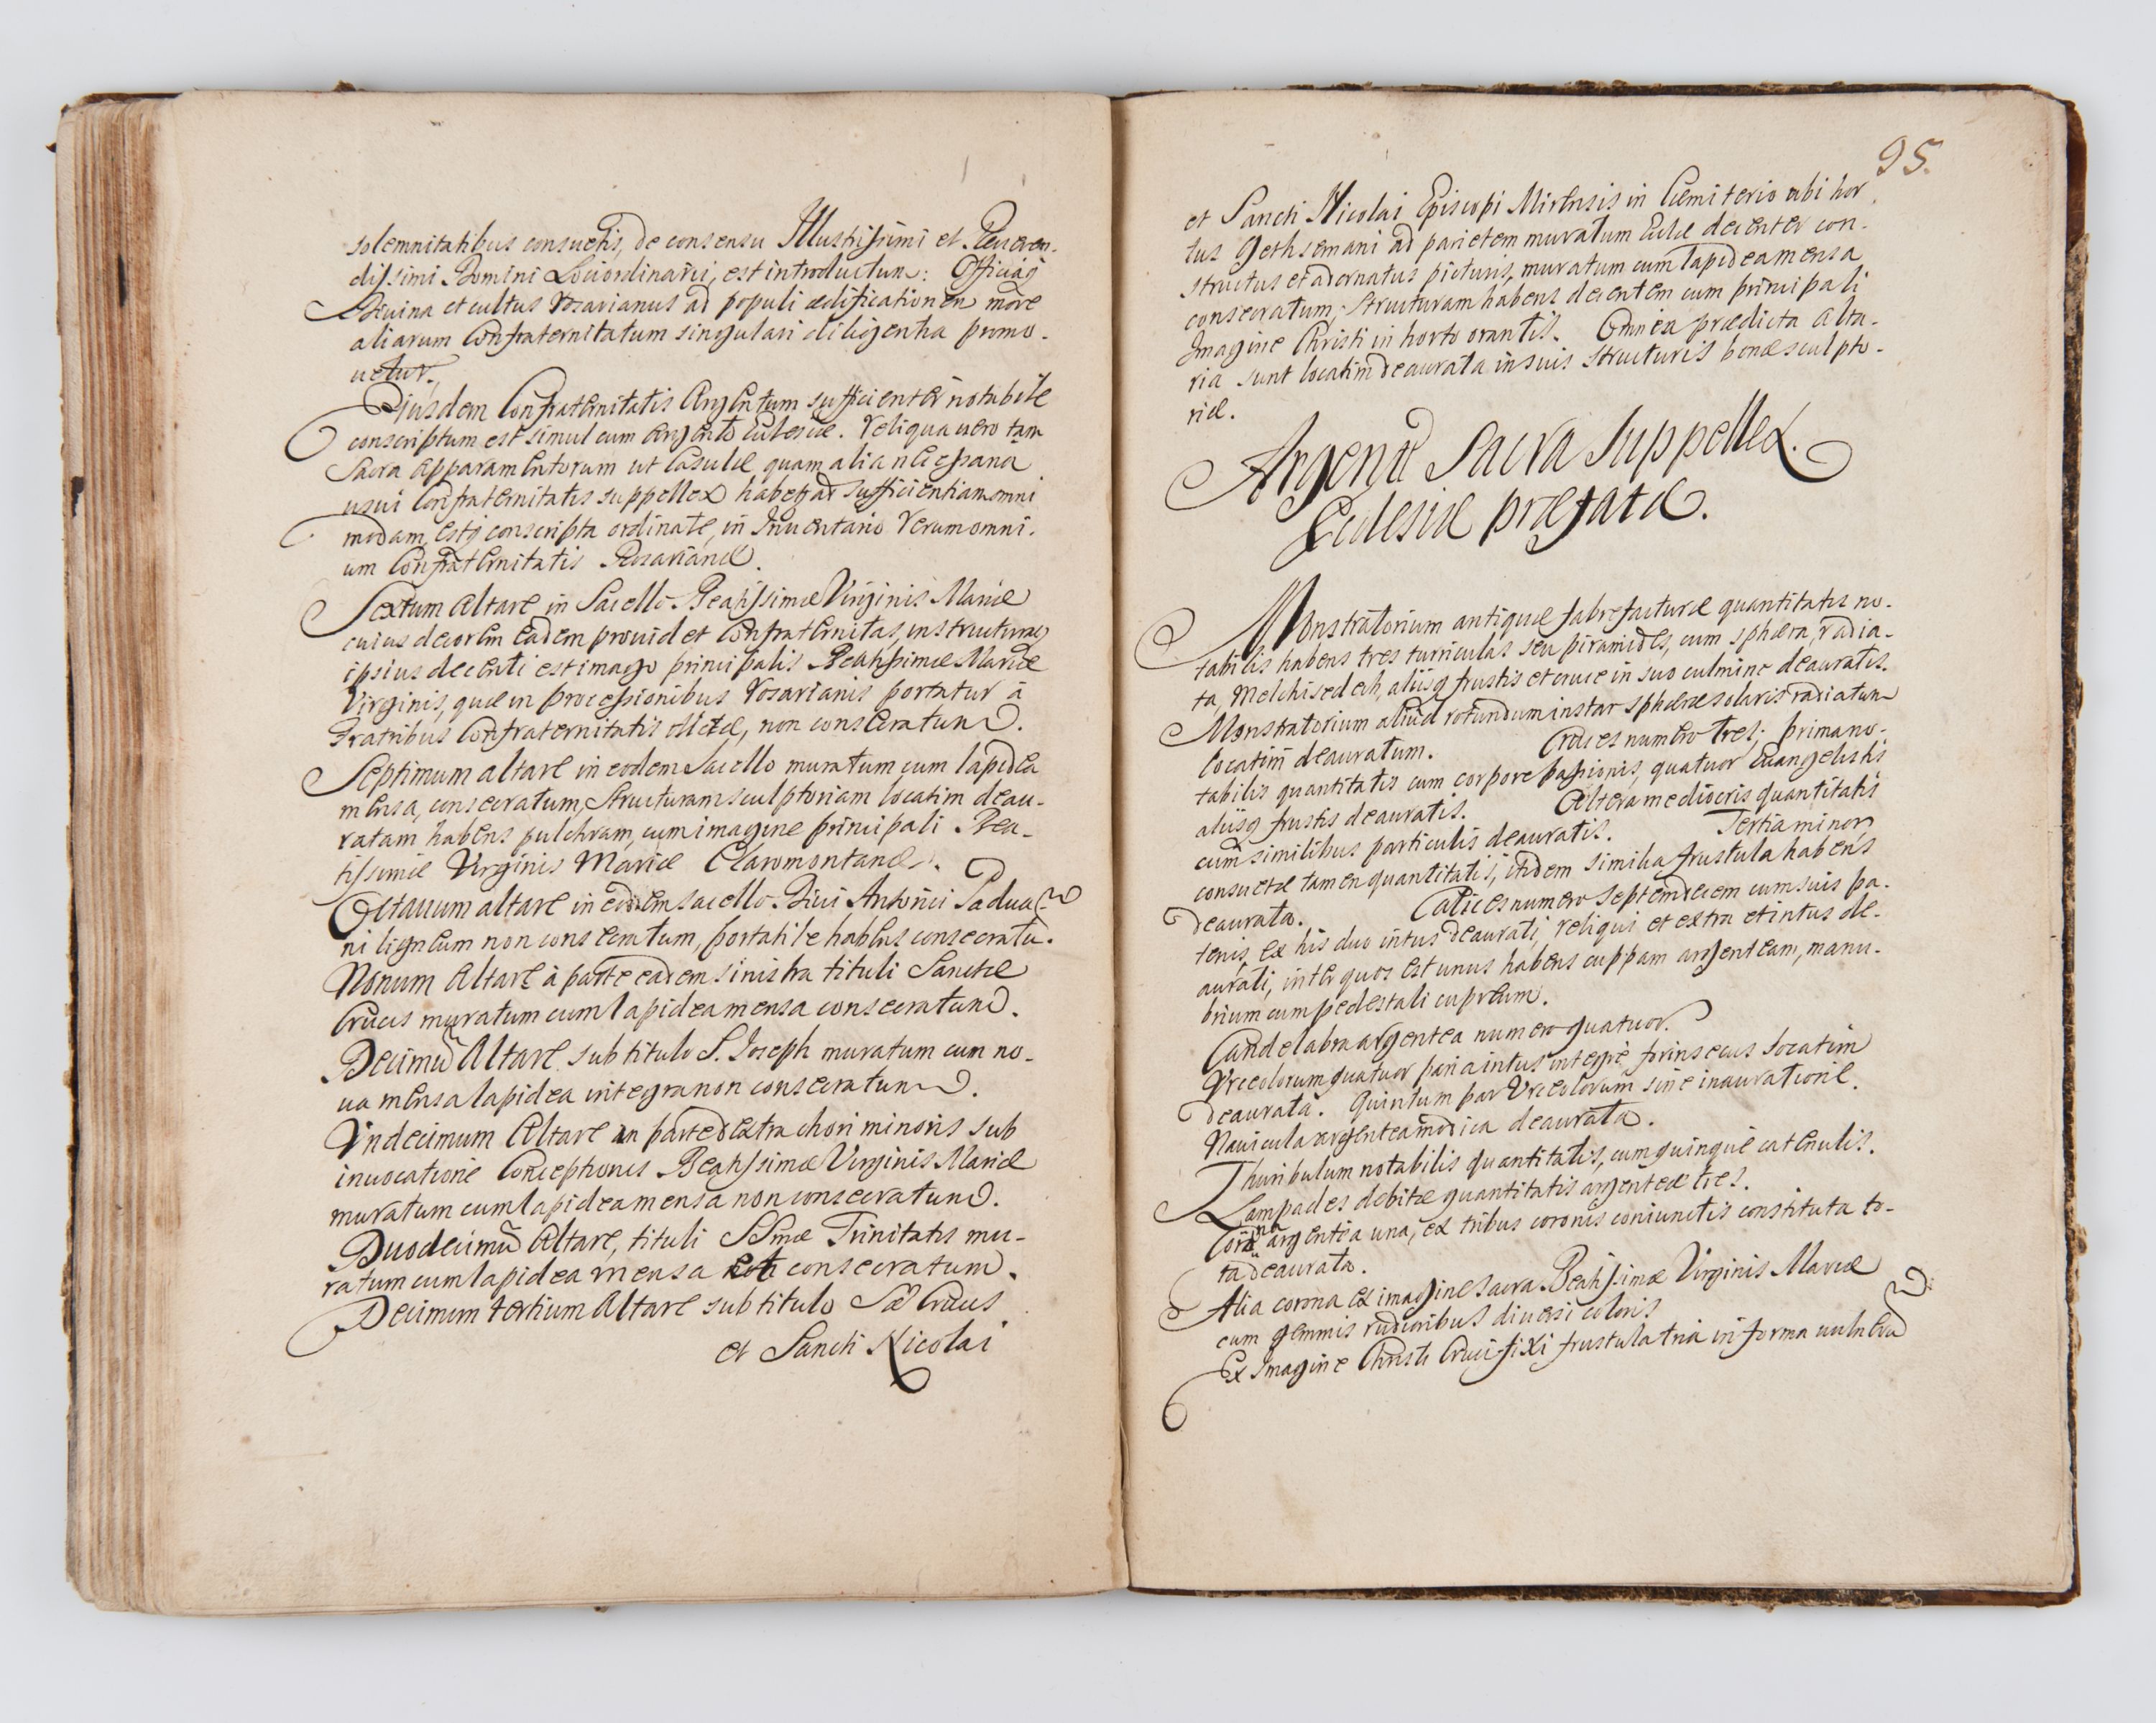 solemnitatibus consuetis, de consensu Illustrissimi et Reueren-
dissimi Domini Lociordinarii, est introductum: Officiaq
Diuina et cultus Rosarianus ad populi ædificationem more
aliarum Confraternitatum singulari diligentia promo-
uetur.
Eiusdem Confraternitatis Argentum sufficienter notabile
conscriptum est simul cum Argento Ecclesiæ. Reliqua uero tam
Sacra Apparamentorum ut Casulæ quam alia necessaria
usui Confraternitatis suppellex habetur ad sufficientiam omni
modam, estq conscripta ordinate, in Inuentario rerum omni-
um Confraternitatis Rosarianæ.
Sextum Altare in Sacello Beatissimæ Virginis Mariæ
cuius decorem eadem prouidet Confraternitas, in structura
ipsius decenti est imago principalis Beatissimæ Mariæ
Virginis, quæ in processionibus Rosarianis portatur à
Fratribus Confraternitatis dictæ, non consecratum.
Septimum altare in eodem Sacello muratum cum lapidea
mensa, consecratum, Structuram sculptoriam locatim deau-
ratam habens pulchram, cum imagine principali Bea-
tissimæ Virginis Mariæ Claromontanæ.
Octauum altare in eodem Sacello Diui Antonii Padua
ni ligneum non consecratum, portatile habens consecratū.
Nonum Altare à parte eadem sinistra tituli Sanctæ
Crucis muratum cum lapidea mensa consecratum.
Decimū Altare sub titulo S. Joseph muratum cum no-
ua mensa lapidea integra non consecratum.
Vndecimum Altare in parte dextra chori minoris sub
inuocatione Conceptionis Beatissimæ Virginis Mariæ
muratum cum lapidea mensa non consecratum.
Duodecimū Altare, tituli SSmæ Trinitatis mu-
ratum cum lapidea mensa consecratum.
Decimum tertium Altare sub titulo Sæ Crucis
et Sancti Nicolai
95.
et Sancti Nicolai Episcopi Mirensis in Cæmiterio ubi hor
tus Gethsemani ad parietem muratum Eccłæ decenter con-
structus et adornatus picturis, muratum cum lapidea mensa
consecratum, structuram habens decentem cum principali
Imagine Christi in horto orantis. Omnia prædicta Alta-
ria sunt locatim deaurata in suis structuris bonæ sculpto-
riæ.
Argentū Sacra Suppellex
Ecclesiæ præfatæ.
Monstratorium antiquæ fabrefacturæ quantitatis no-
tabilis habens tres turriculas seu piramides, cum sphæra, radia-
ta, Melchisedech, aliisq frustis et cruce in suo culmine deauratis.
Monstratorium aliud rotundum instar sphæræ solaris radiatum
locatim deauratum. Cruces numero tres; prima no-
tabilis quantitatis cum corpore passionis, quatuor Euangelistis
aliisq frustis deauratis. Altera mediocris quantitatis
cum similibus particulis deauratis. Tertia minor
consuetæ tamen quantitatis, itidem similia frustula habens
deaurata. Calices numero septemdecem cum suis pa-
tenis, ex his duo intus deaurati, reliqui et extra et intus de-
aurati, inter quos est unus habens cuppam argenteam, manu-
brium cum pedestali cupreum.
Candelabra argentea numero quatuor.
Vrceolorum quatuor paria intus integrè forinsecus locatim
deaurata. Quintum par Vrceolorum sine inauratione.
Nauicula argentea modica deaurata.
Thuribulum notabilis quantitatis, cum quinque catenulis.
Lampades debitæ quantitatis argenteæ tres.
Corona argentea una, ex tribus coronis coniunctis constituta to-
ta deaurata.
Alia corona ex imagine sacra Beatissimæ Virginis Mariæ
cum gemmis rudioribus diuersi coloris
Ex Imagine Christi Crucifixi frustula tria in forma uulnerū